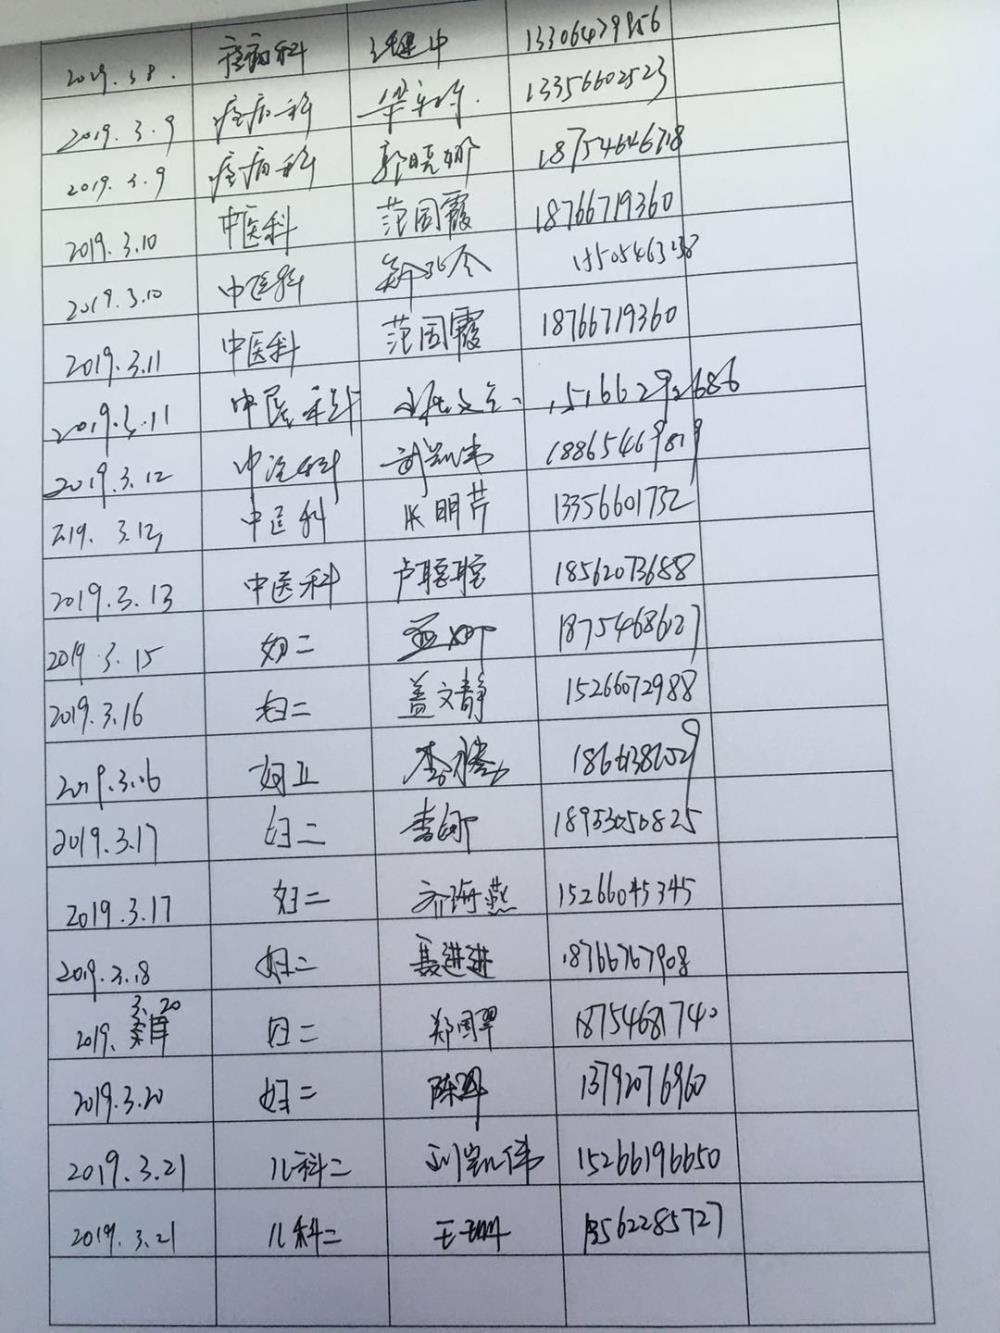 2019.3.8. 疼病科 13306479856
2019.3.9 疼病科 13356602523
2019.3.9 疼病科 郭晓娜 18754646718
2019.3.10 中医科 范国霞 18766719360
2019.3.10 中医科
2019.3.11 中医科 范国霞 18766719360
2019.3.11 中医科 15166292686
2019.3.12 武凯伟 18865469819
219. 3.12 中医科 张明芹 13356601732
2019.3.13 中医科 卢聪聪 18562073688
2019.3.15 妇二 18754686127
2019.3.16 妇二 盖文静 15266072988
2019.3.16 妇五
2019.3.17 妇二 李娜 18953050825
2019.3.17 妇二 齐海燕 15266045345
2019.3.18 妇二 聂进进 18766767908
2019. 3.20 妇二 郑国翠 18754681740
2019.3.20 妇二 13792076960
2019.3.21 儿科二 刘凯伟 15266196650
2019.3.21 儿科二 13562285727